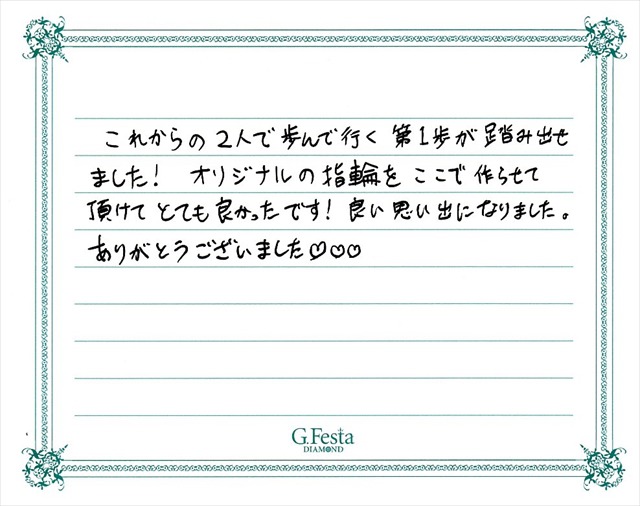 これからの2人で歩んで行く第1歩が踏み出せ
ました! オリジナルの指輪をここで作らせて
頂けてとても良かったです! 良い思い出になりました。
ありがとうございました♡♡♡
G.Festa
DIAMOND